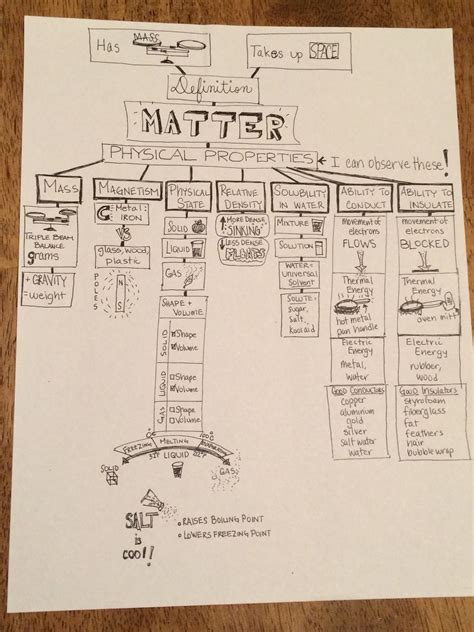 Has MASS
Takes up SPACE
Definition
MATTER
PHYSICAL PROPERTIES ← I can observe these!
MASS
TRIPLE BEAM
BALANCE
grams
+ GRAVITY
= weight
MAGNETISM
Metal:
IRON
VS
glass, wood,
plastic
POLES
N
S
PHYSICAL
STATE
SOLID
LIQUID
GAS
SHAPE +
VOLUME
SOLID
Shape
Volume
LIQUID
Shape
Volume
GAS
Shape
Volume
RELATIVE
DENSITY
MORE DENSE
SINKING
LESS DENSE
FLOATS
SOLUBILITY
IN WATER
MIXTURE
SOLUTION
WATER =
universal
solvent
SOLUTE:
sugar,
salt,
kool aid
ABILITY TO
CONDUCT
movement of
electrons
FLOWS
Thermal
Energy
hot metal
pan handle
Electric
Energy
metal,
water
Good Conductors
copper
aluminum
gold
silver
salt water
water
ABILITY TO
INSULATE
movement of
electrons
BLOCKED
Thermal
Energy
oven mitt
Electric
Energy
rubber,
wood
Good Insulators
styrofoam
fiberglass
fat
feathers
hair
bubble wrap
FREEZING
MELTING
100°
SOLID
LIQUID
GAS
SALT
is
cool!
RAISES BOILING POINT
LOWERS FREEZING POINT